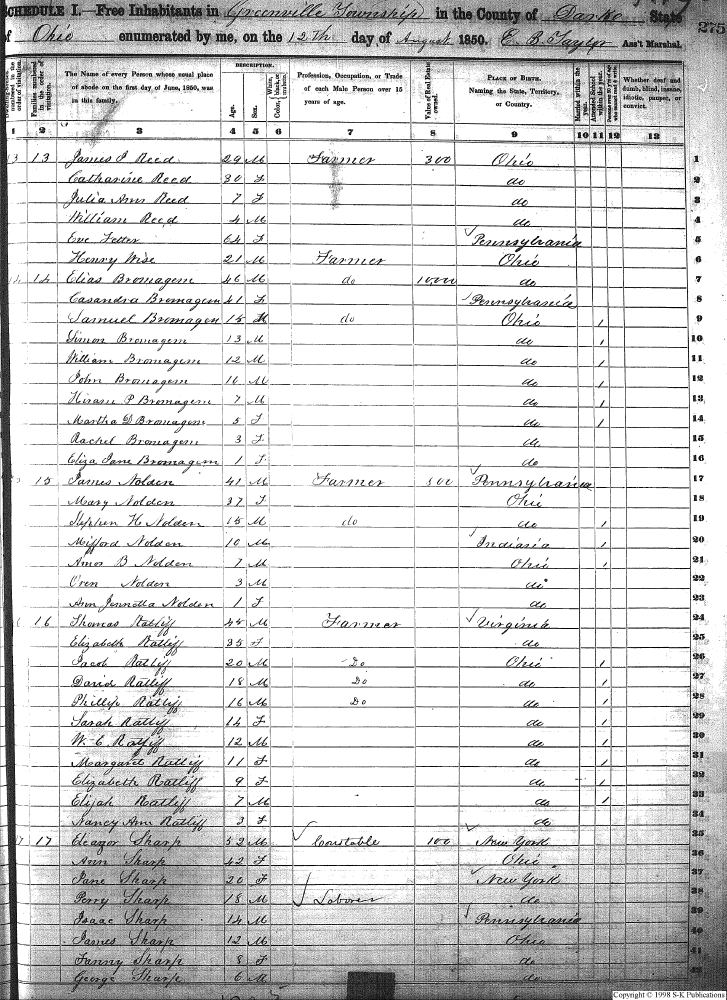 SCHEDULE I.—Free Inhabitants in Greenville Township in the County of Darke State
of Ohio enumerated by me, on the 12th day of August 1850. E. B. Taylor Ass't Marshal. 275
DESCRIPTION.
numbered in the order of visitation.
Families numbered in the order of visitation.
The Name of every Person whose usual place of abode on the first day of June, 1850, was in this family.
Age.
Sex.
Color, White, black, or mulatto.
Profession, Occupation, or Trade of each Male Person over 15 years of age.
Value of Real Estate owned.
PLACE OF BIRTH. Naming the State, Territory, or Country.
Married within the year.
Attended School within the year.
Persons over 20 y'rs of age who cannot read & write.
Whether deaf and dumb, blind, insane, idiotic, pauper, or convict.
1 2 3 4 5 6 7 8 9 10 11 12 13
13 13 James P Reed 29 M Farmer 300 Ohio 1
Catharine Reed 30 F do 2
Julia Ann Reed 7 F do 3
William Reed 4 M do 4
Eve Fetter 64 F Pennsylvania 5
Henry Wise 21 M Farmer Ohio 6
14 14 Elias Bromagem 46 M do 1000 do 7
Casandra Bromagem 41 F Pennsylvania 8
Samuel Bromagem 15 M do Ohio 1 9
Simon Bromagem 13 M do 1 10
William Bromagem 12 M do 1 11
John Bromagem 10 M do 1 12
Hiram P Bromagem 7 M do 1 13
Martha D Bromagem 5 F do 1 14
Rachel Bromagem 3 F do 15
Eliza Jane Bromagem 1 F do 16
15 James Nolden 41 M Farmer 500 Pennsylvania 17
Mary Nolden 37 F Ohio 18
Stephen H Nolden 15 M do do 1 19
Mifford Nolden 10 M Indiana 1 20
Amos B Nolden 7 M Ohio 1 21
Oren Nolden 3 M do 22
Ann Jennetta Nolden 1 F do 23
16 Thomas Ratliff 45 M Farmer Virginia 24
Elizabeth Ratliff 35 F do 25
Jacob Ratliff 20 M Do Ohio 1 26
David Ratliff 18 M Do do 1 27
Phillip Ratliff 16 M Do do 1 28
Sarah Ratliff 14 F do 1 29
W. C. Ratliff 12 M do 1 30
Margaret Ratliff 11 F do 1 31
Elizabeth Ratliff 9 F do 1 32
Elijah Ratliff 7 M do 1 33
Nancy Ann Ratliff 3 F do 34
17 17 Eleazor Sharp 52 M Constable 100 New York 35
Ann Sharp 42 F Ohio 36
Jane Sharp 20 F New York 37
Perry Sharp 18 M Laborer do 38
Isaac Sharp 14 M Pennsylvania 39
James Sharp 12 M Ohio 40
Fanny Sharp 8 F do 41
George Sharp 6 M do 42
Copyright © 1998 S-K Publications